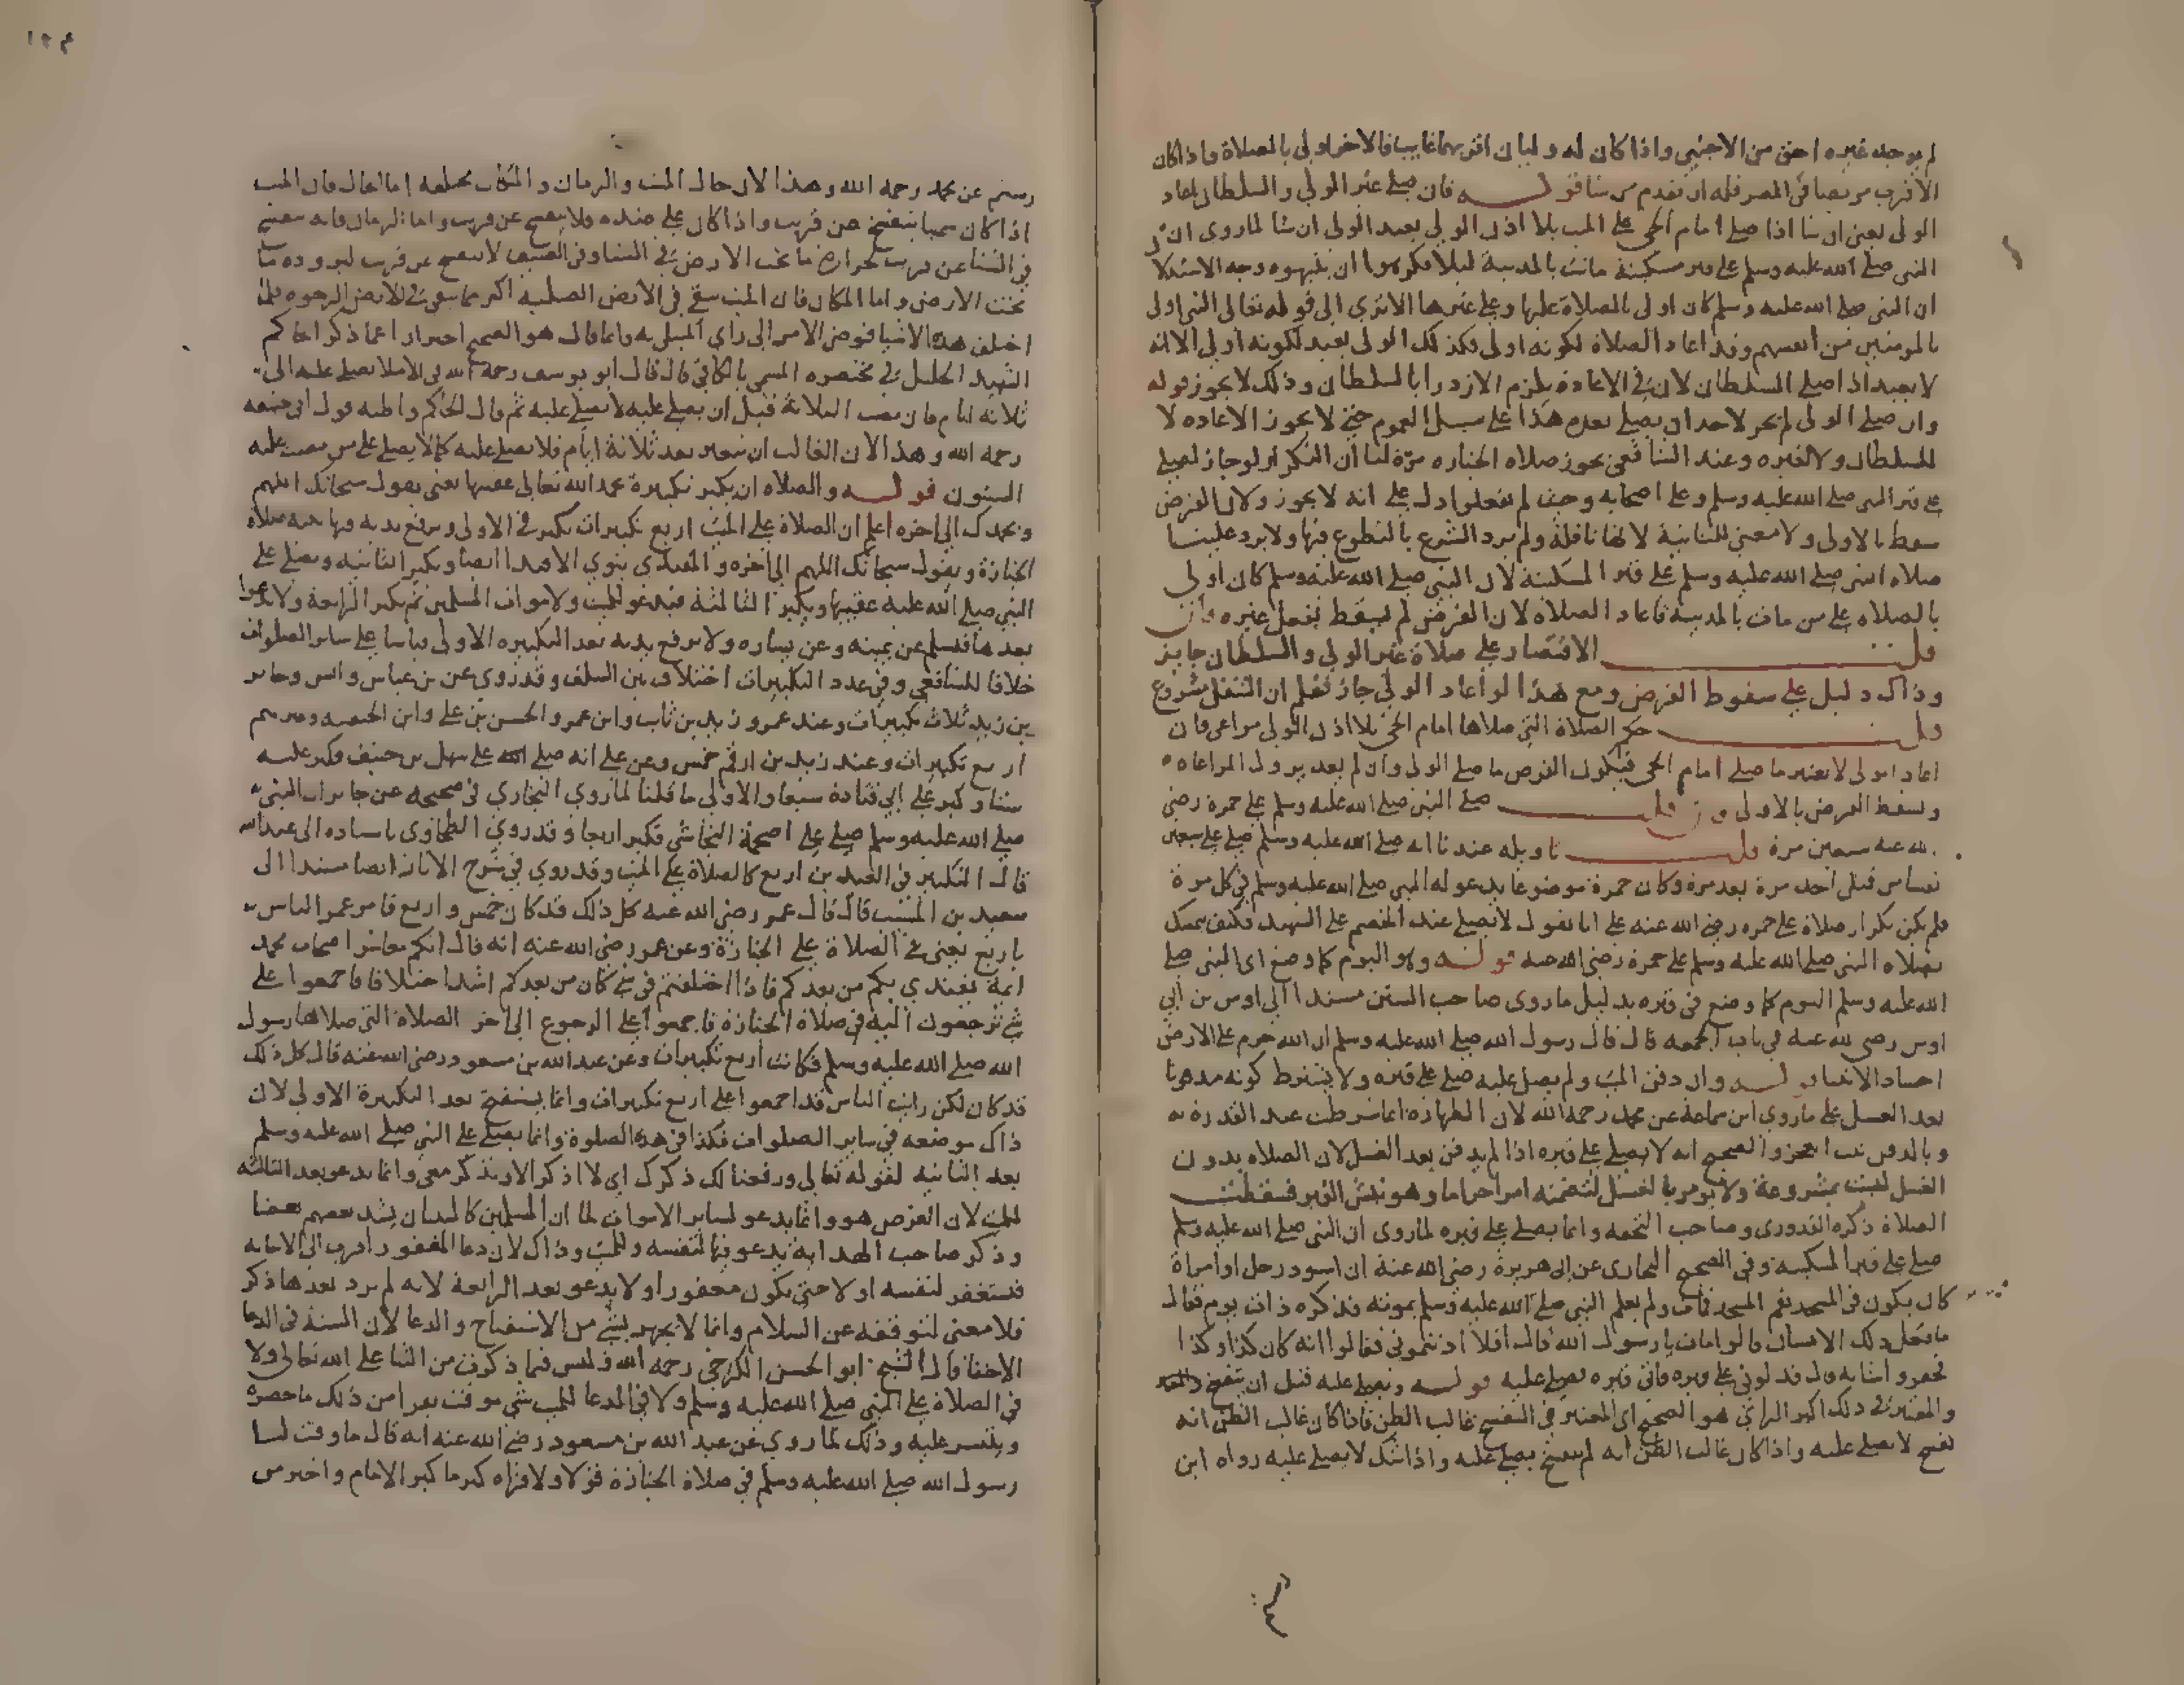 لم يوجد غيره احق من الاجنبي واذا كان له وليان اقربهما غايب فالاخر اولى بالصلاة واذا كان
الاقرب مريضا في المصر فله ان يقدم من شا قوله فان صلى غير الولي والسلطان اعاد
الولي يعني ان شا اذا صلى امام الحي على الميت بلا اذن الولي يعيد الولي ان شا لما روي ان
النبي صلى الله عليه وسلم على قبر مسكينة ماتت بالمدينة ليلا فكرهوا ان ينبهوه وجه الاستدلا
ان النبي صلى الله عليه وسلم كان اولى بالصلاة عليها وعلى غيرها الا ترى الى قوله تعالى النبي اولى
بالمومنين من انفسهم وقد اعاد الصلاة لكونه اولى فكذلك الولي يعيد لكونه اولى الا انه
لا يعيد اذا صلى السلطان لان في الاعادة يلزم الازدرا بالسلطان وذلك لا يجوز قوله
وان صلى الولي لم يجز لاحد ان يصلي بعده هذا على سبيل العموم حتى لا يجوز الاعاده لا
للسلطان ولا لغيره وعند الشافعي يجوز صلاه الجنازه مرة لنا ان التكرار لو جاز لصلي
على قبر النبي صلى الله عليه وسلم وعلى اصحابه وحيث لم يفعلوا دل على انه لا يجوز ولان الفرض
سقط بالاولى ولا معنى للثانية لانها نافلة ولم يرد الشرع بالتطوع فيها ولا يرد علينا
صلاه النبي صلى الله عليه وسلم على قبر المسكينة لان النبي صلى الله عليه وسلم كان اولى
بالصلاه على من مات بالمدينة فاعاد الصلاه لان الفرض لم يسقط بفعل غيره فان
قلت الاقتصار على صلاة غير الولي والسلطان جايز
وذاك دليل على سقوط الفرض ومع هذا لو اعاد الولي جاز فعلم ان التنفل مشروع
قلت حكم الصلاة التي صلاها امام الحي بلا اذن الولي مراعى فان
اعاد الولي لا يعتبر ما صلى امام الحي فيكون الفرض ما صلى الولي وان لم يعد يزول المراعاه
ويسقط الفرض بالاولى قلت صلى النبي صلى الله عليه وسلم على حمزة رضي
الله عنه سبعين مرة قلت تاويله عندنا انه صلى الله عليه وسلم صلى على سبعين
نفسا من قتلى احد مرة بعد مرة وكان حمزة موضوعا يدعو له النبي صلى الله عليه وسلم في كل مرة
فلم يكن تكرار صلاة على حمزه رضي الله عنه على انا نقول لا يصلى عند الخصم على الشهيد فكيف يتمسك
بصلاه النبي صلى الله عليه وسلم على حمزة رضي الله عنه قوله وهو اليوم كما وضع اي النبي صلى
الله عليه وسلم اليوم كما وضع في قبره بدليل ما روى صاحب السنن مسندا الى اوس بن ابي
اوس رضي لله عنه في باب الجمعه قال قال رسول الله صلى الله عليه وسلم ان الله حرم على الارض
اجساد الانبيا قوله وان دفن الميت ولم يصل عليه صلي على قبره ولا يشترط كونه مدفونا
بعد الغسل على ما روي ابن سماعة عن محمد رحمه الله لان الطهاره انما شرطت عند القدرة
وبالدفن ثبت العجز والصحيح انه لا يصلى على قبره اذا لم يدفن بعد الغسل لان الصلاه بدون
الغسل ليست بمشروعة ولا يومر بالغسل لتضمنه امرا حراما وهو نبش القبر فسقطت
الصلاة ذكره القدوري وصاحب التحفه وانما يصلى على قبره لما روي ان النبي صلى الله عليه وسلم
صلى على قبر المسكينه وفي الصحيح البخاري عن ابي هريرة رضي الله عنه ان اسود رجل او امراة
كان يكون في المسجد يقم المسجد فمات ولم يعلم النبي صلى الله عليه وسلم بموته فذكره ذات يوم فقال
ما فعل ذلك الانسان قالوا مات يا رسول الله قال افلا اذنتموني فقالوا انه كان كذا وكذا
فحقروا شانه قال فدلوني على قبره فاتى قبره فصلى عليه قوله ويصلى عليه قبل ان يتفسخ
والمعتبر في ذلك اكبر الراي هو الصحيح اي المعتبر في التفسخ غالب الظن فاذا كان غالب الظن انه
تفسخ لا يصلى عليه واذا كان غالب الظن انه لم يتفسخ يصلى عليه واذا شك لا يصلى عليه رواه ابن
١٢٤
رستم عن محمد رحمه الله وهذا لان حال الميت والزمان والمكان مختلفه اما الحال فان الميت
اذا كان سمينا يتفسخ عن قريب واذا كان على ضده فلا يتفسخ عن قريب واما الزمان فانه يتفسخ
في الشتا عن قريب لحرارة ما تحت الارض في الشتا وفي الصيف لا يتفسخ عن قريب لبرودة ما
تحت الارض واما المكان فان الميت يبقى في الارض الصلبه اكثر مما يبقى في الارض الرخوه فلما
اختلف هذه الاشيا فوض الامر الى راي المبتلى به وانما قال هو الصحيح احترازا عما ذكر الحاكم
الشهيد الجليل في مختصره المسمى بالكافي قال قال ابو يوسف رحمه الله في الاملا يصلى عليه الى
ثلاثه ايام فان مضت الثلاثة قبل ان يصلى عليه لا يصلى عليه ثم قال الحاكم واظنه قول ابي حنيفه
رحمه الله وهذا لان الغالب ان يتغير بعد ثلاثة ايام فلا يصلى عليه كما لا يصلى على من مضت عليه
السنون قوله والصلاه ان يكبر تكبيرة يحمد الله تعالى عقيبها يعني يقول سبحانك اللهم
وبحمدك الى اخره اعلم ان الصلاة على الميت اربع تكبيرات يكبر في الاولى ويرفع يديه فيها صلاة
الجنازة ويقول سبحانك اللهم الى اخره والمقتدي ينوي الاقتدا ايضا ويكبر الثانيه ويصلي على
النبي صلى الله عليه عقيبها ويكبر الثالثة فيدعو للميت ولاموات المسلمين ثم يكبر الرابعة ولا يدعوا
بعدها فيسلم عن يمينه وعن يساره ولا يرفع يديه بعد التكبيره الاولى قياسا على ساير الصلوات
خلافا للشافعي وفي عدد التكبيرات اختلاف بين السلف وقد روي عن بن عباس وانس وجابر
بن زيد ثلاث تكبيرات وعند عمر وزيد بن ثابت وابن عمر والحسن بن علي وابن الحنفيه وغيرهم
اربع تكبيرات وعند زيد بن ارقم خمس وعن علي انه صلى الله على سهل بن حنيف وكبر عليه
ستا وكبر على ابي قتادة سبعا والاولى ما قلنا لما روي البخاري في صحيحه عن جابر ان النبي
صلى الله عليه وسلم صلى على اصحمة النجاشي فكبر اربعا وقد روي الطحاوي باسناده الى عبد الله
قال التكبير في العيدين اربع كالصلاة على الميت وقد روي في شرح الاثار ايضا مسندا الى
سعيد بن المسيب قال قال عمر رضي الله عنه كل ذلك قد كان خمس واربع فامر عمر الناس
باربع يعني في الصلاة على الجنازة وعن عمر رضي الله عنه انه قال انكم معاشر اصحاب محمد
ايمة يقتدي بكم من بعدكم فاذا اختلفتم في شي كان من بعدكم اشد اختلافا فاجمعوا على
شي ترجعون اليه في صلاة الجنازة فاجمعوا على الرجوع الى اخر الصلاة التي صلاها رسول
الله صلى الله عليه وسلم فكانت اربع تكبيرات وعن عبد الله بن مسعود رضي الله عنه قال كل ذلك
قد كان لكن رايت الناس قد اجمعوا على اربع تكبيرات وانما يستفتح بعد التكبيرة الاولى لان
ذاك موضعه في ساير الصلوات فكذا في هذه الصلوة وانما يصلي على النبي صلى الله عليه وسلم
بعد الثانيه لقوله تعالى ورفعنا لك ذكرك اي لا اذكر الا وتذكر معي وانما يدعو بعد الثالثه
للميت لان الغرض هو وانما يدعو لساير الاموات لما ان المسلمين كالبنيان يشد بعضهم بعضا
وذكر صاحب الهداية يدعو فيها لنفسه وللميت وذاك لان دعا المغفور اقرب الى الاجابه
فيستغفر لنفسه اولا حتى يكون مغفورا ولا يدعو بعد الرابعة لانه لم يرد بعدها ذكر
فلا معنى لتوقفه عن السلام وانما لا يجهر بشي من الاستفتاح والدعا لان السنة في الدعا
الاخفا قال الشيخ ابو الحسن الكرخي رحمه الله وليس فيما ذكرت من الثنا على الله تعالى ولا
في الصلاة على النبي صلى الله عليه وسلم ولا في الدعا للميت شي موقت يقرا من ذلك ما حضره
ويتيسر عليه وذلك لما روي عن عبد الله بن مسعود رضي الله عنه انه قال ما وقت لنا
رسول الله صلى الله عليه وسلم في صلاة الجنازة قولا ولا قراه كبر ما كبر الامام واختر من